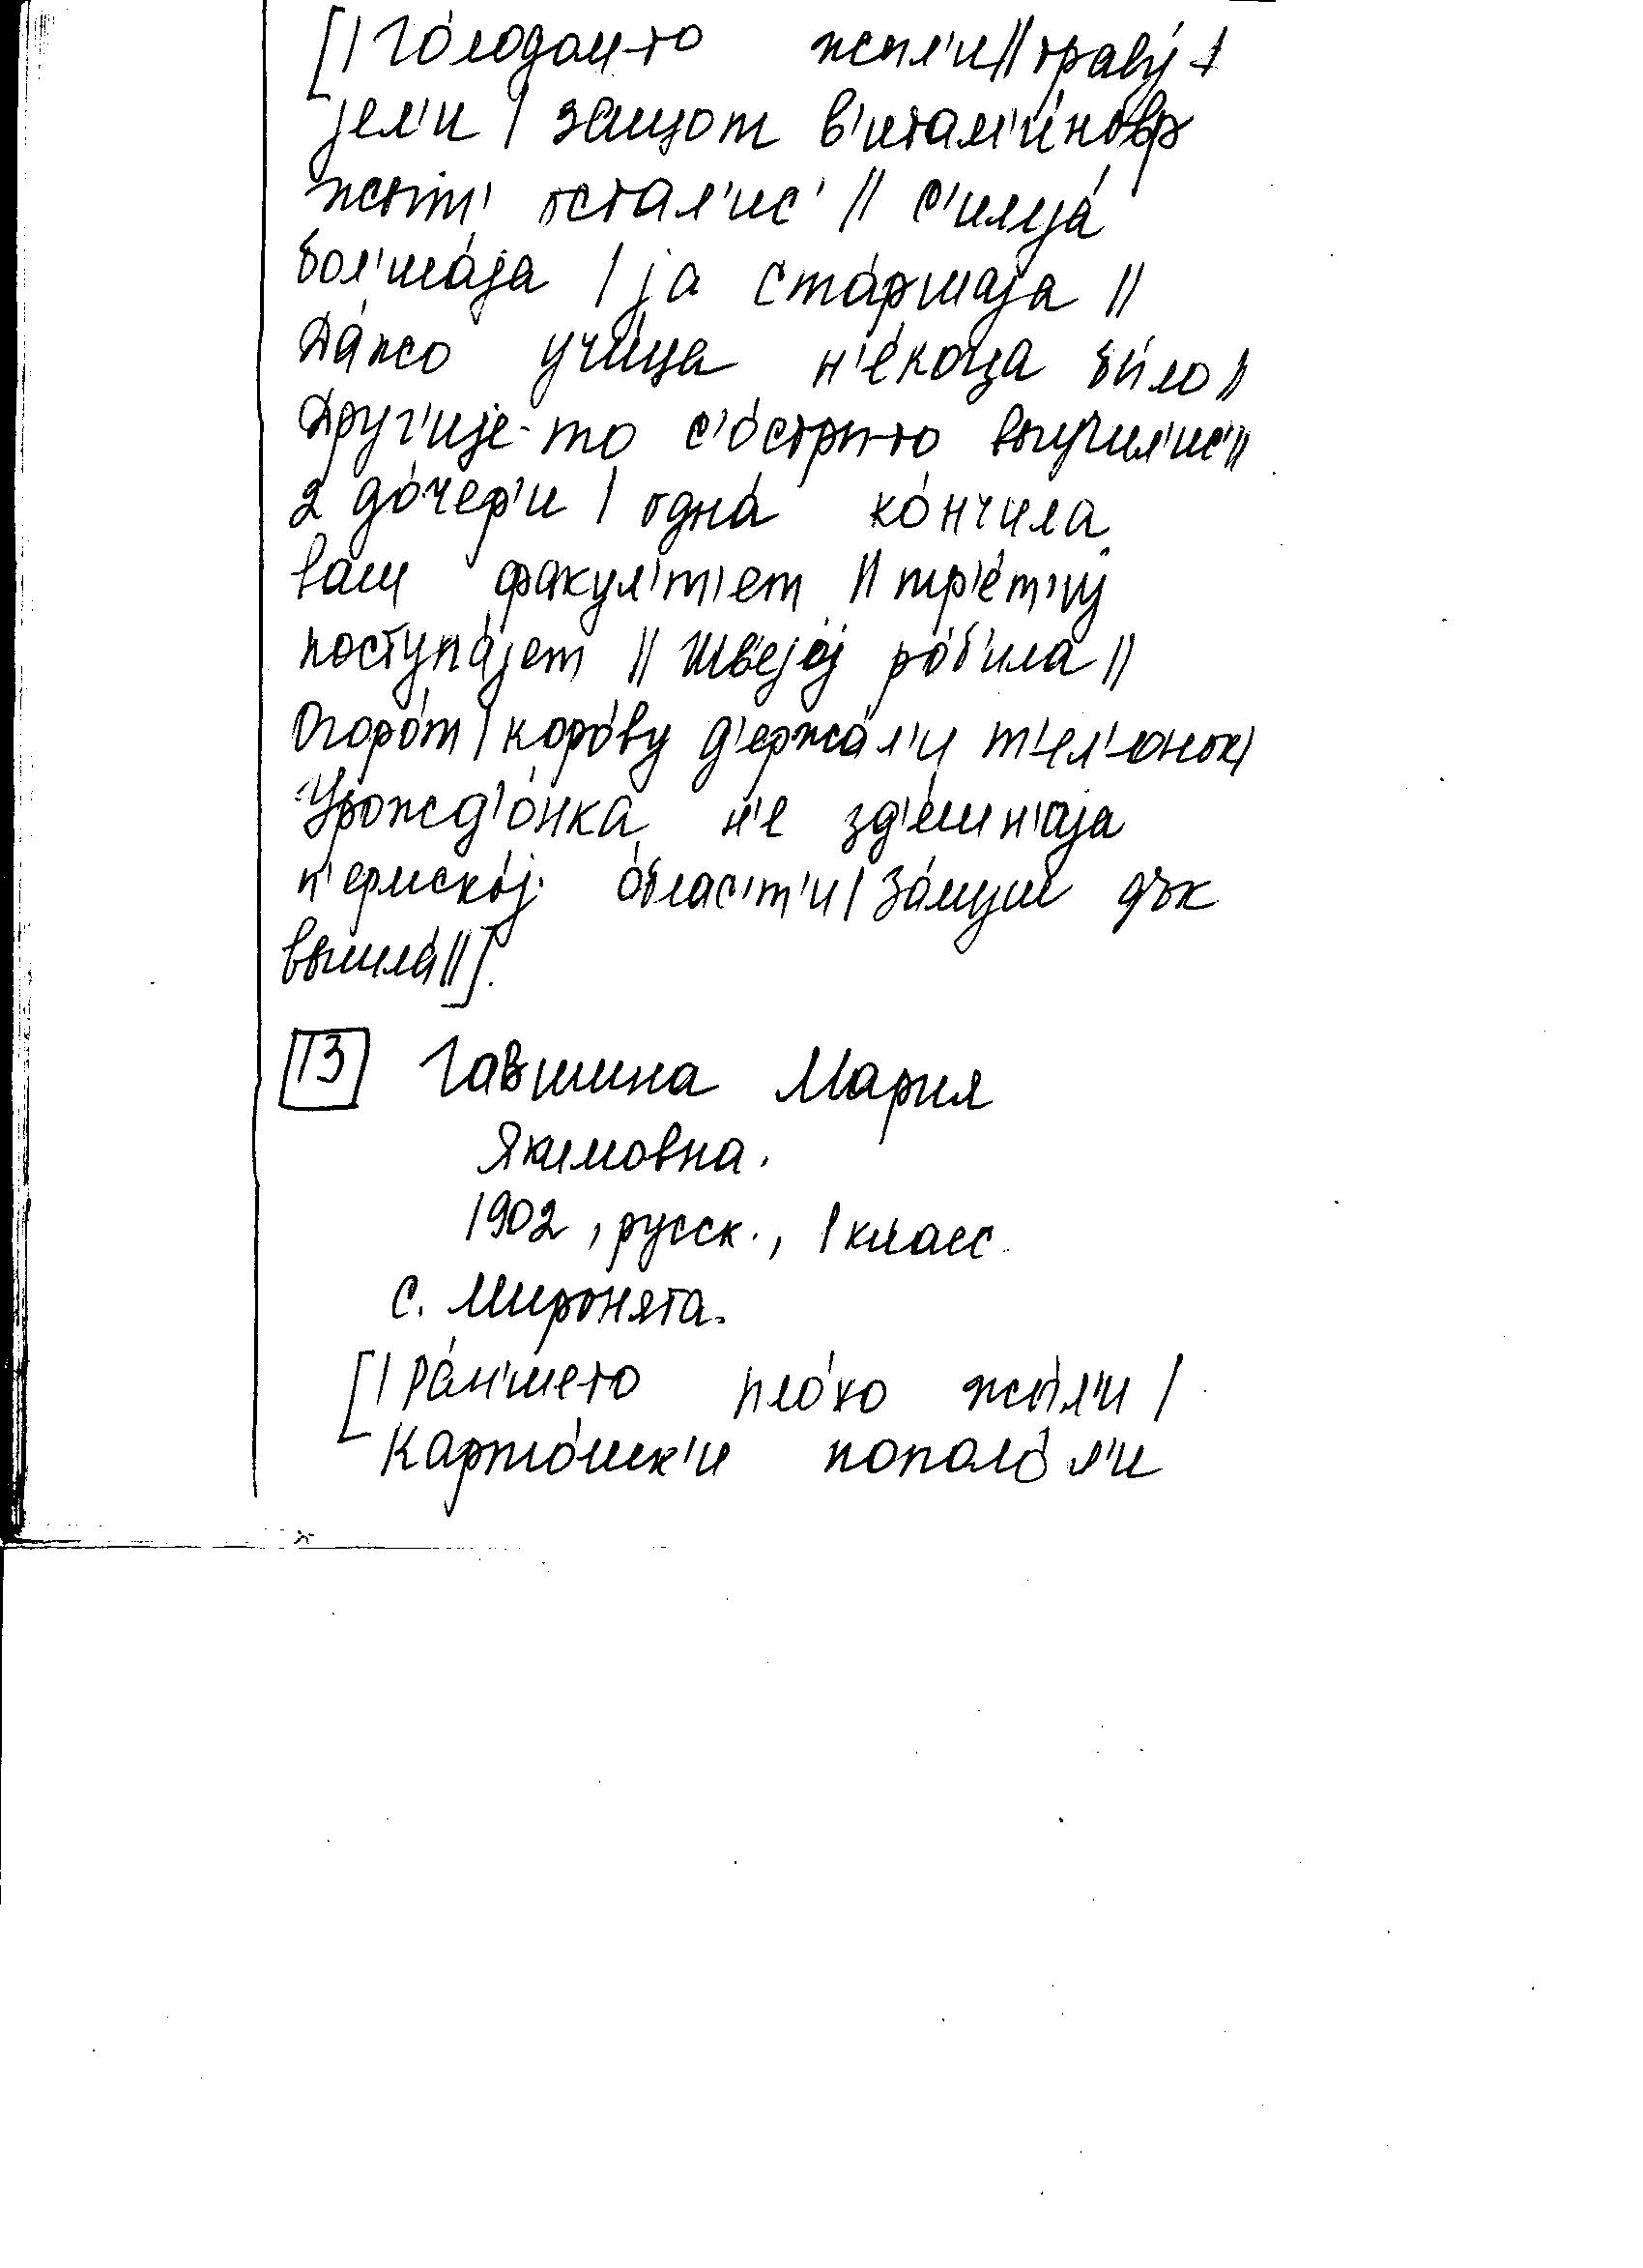 [| Го́лодом-то жы́л'и || траву́ +
јел'и | защот в'итам'и́новр
жыт' остал'ис' || с'имја́
бол'ша́ја | ја ста́ршаја ||
Да́жо учи́ца н'е́когда бы́ло ||
Друг'ије-то с'о́стры-то выучил'ис' ||
2 до́чер'и | одна́ ко́нчила
ваш факул'т'ет || тр'е́т'иј
поступа́јет || Шв'ејо́ј ро́б'ила ||
Огоро́т | коро́ву д'ержа́л'и т'ел'онок |
Урожд'о́нка н'е зд'е́шн'аја
п'ермско́ј о́блас'т'и | За́муш дък
вышла́ ||].
13 Гавшина Мария
Якимовна.
1902, русск., 1 класс.
с. Миронята.
[| Ра́н'шето пло́хо жы́л'и |
Карто́шк'и попола́л'и